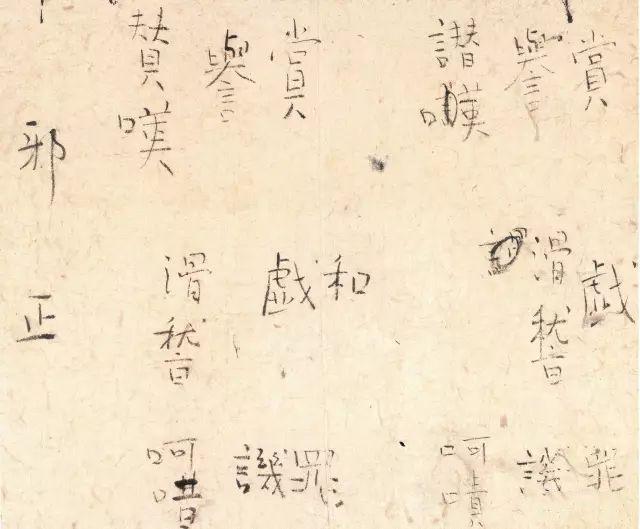 賞
譽
讃嘆
戯
滑稽
罪
譏
呵嘖
賞
譽
賛嘆
和
戯
滑稽
罪
譏
呵嘖
邪正